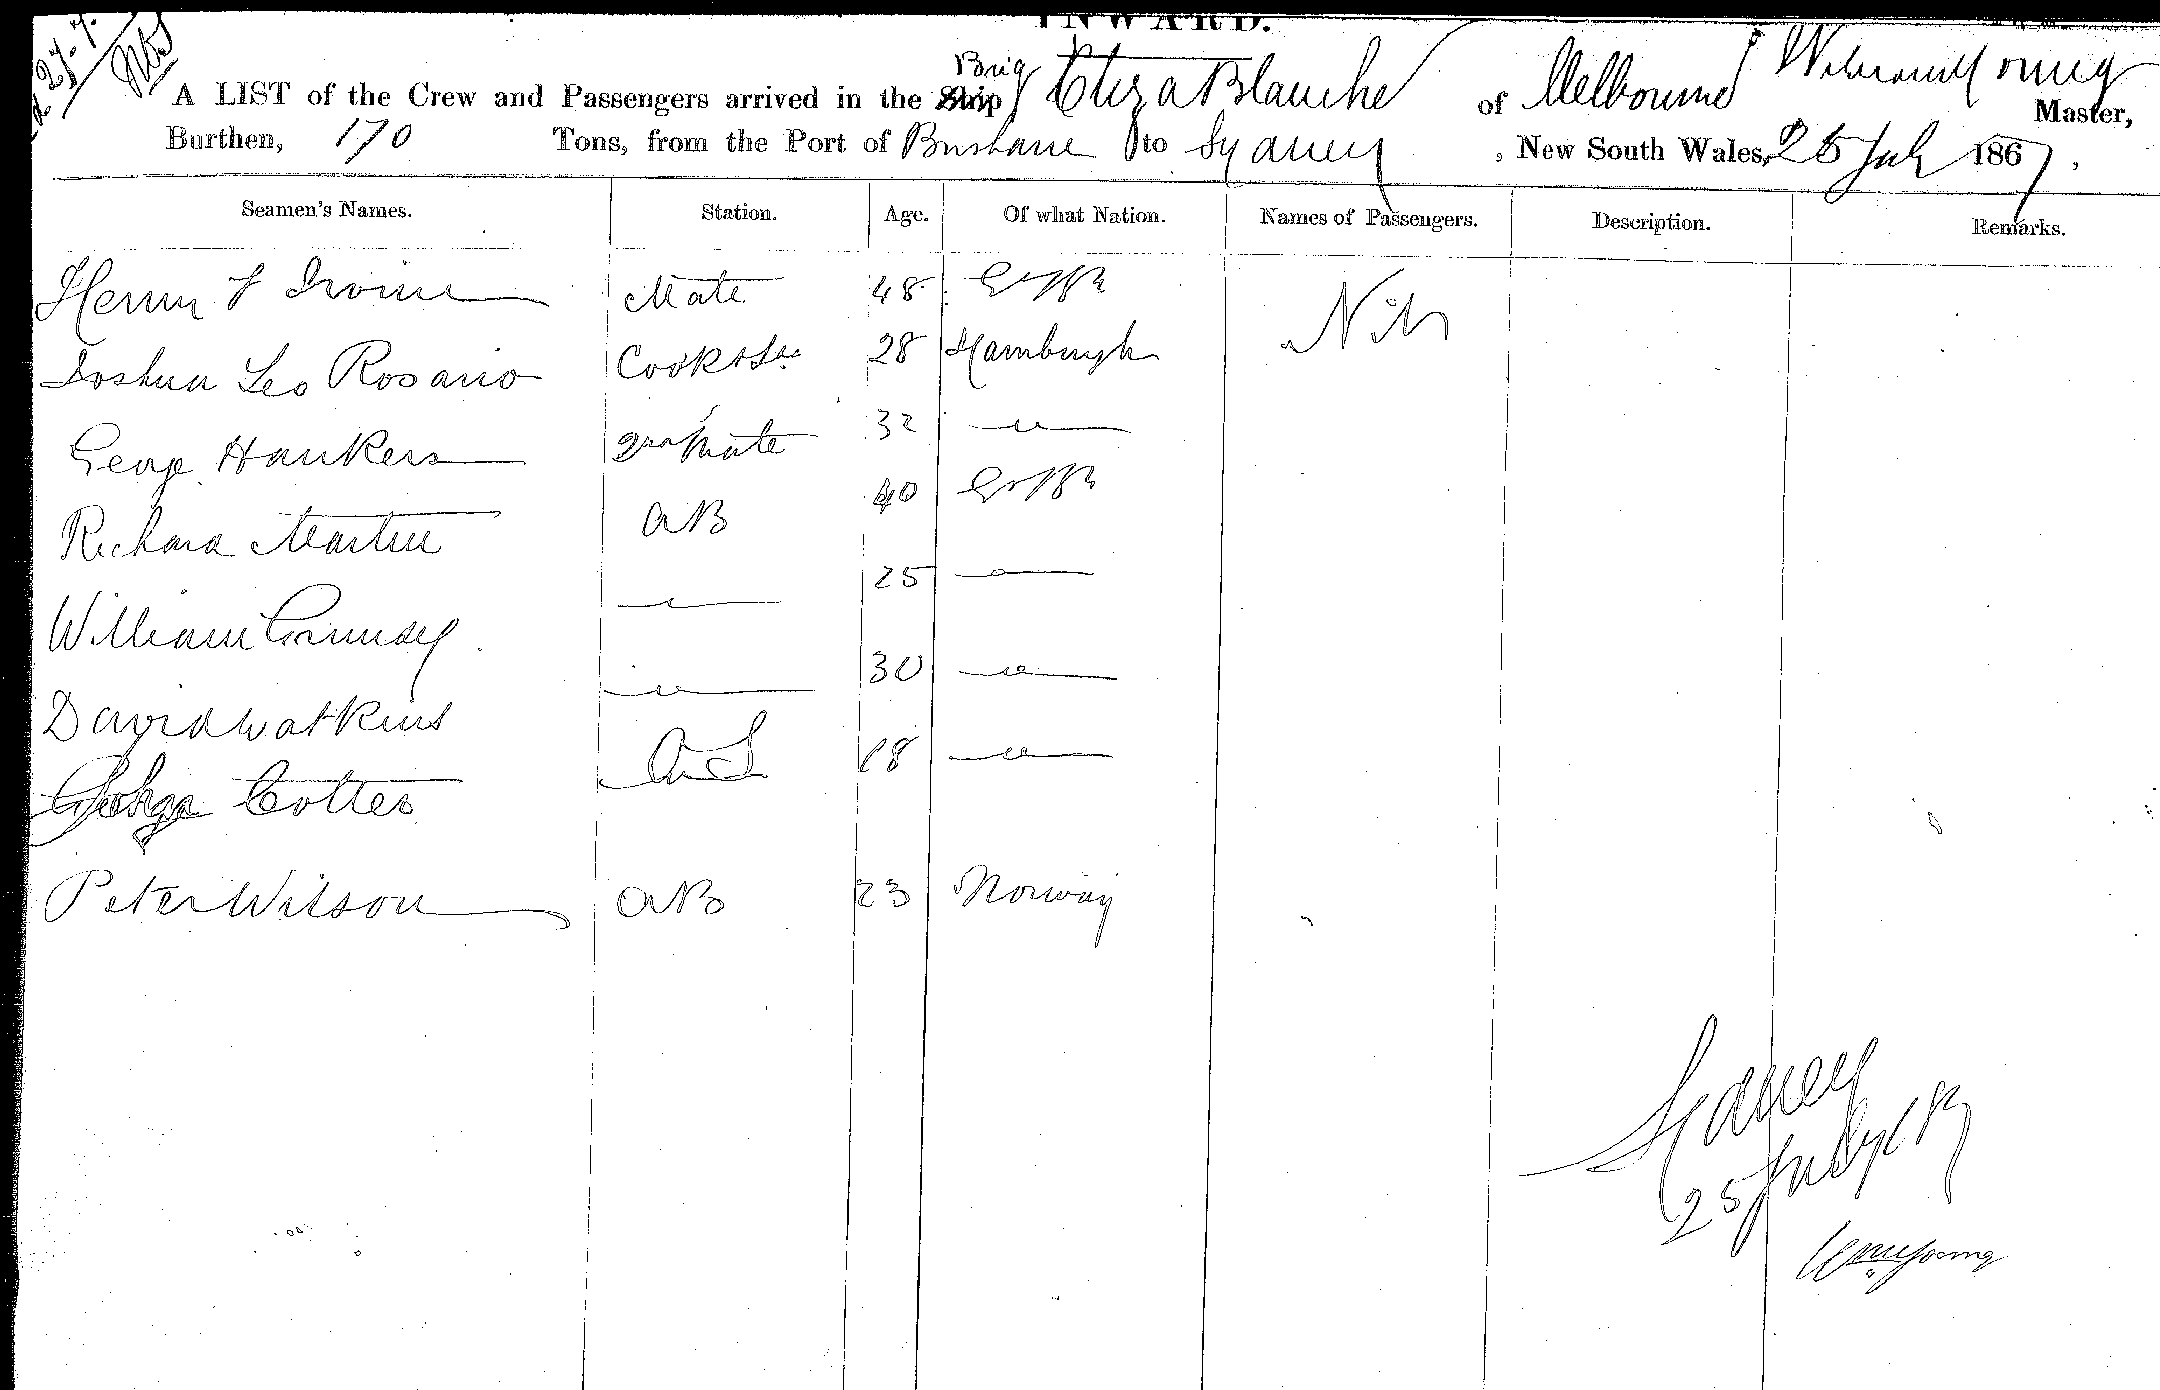 INWARD.
27.7.
A LIST of the Crew and Passengers arrived in the Ship Brig Eliza Blanche of Melbourne William Young Master,
Burthen, 170 Tons, from the Port of Brisbane to Sydney, New South Wales, 25 July 1867.
Seamen's Names. Station. Age. Of what Nation. Names of Passengers. Description. Remarks.
Henry F Irvine Mate 48 Nil
Joshua Leo Rosario Cook & Sd 28 Hamburgh
George Hankers 2nd Mate 32 "
Richard Martin AB 40
William Grimsey " 25 "
David Watkins " 30 "
Cotter 18 "
Peter Wilson AB 23 Norway
Sydney
25 July 67
Wm Young